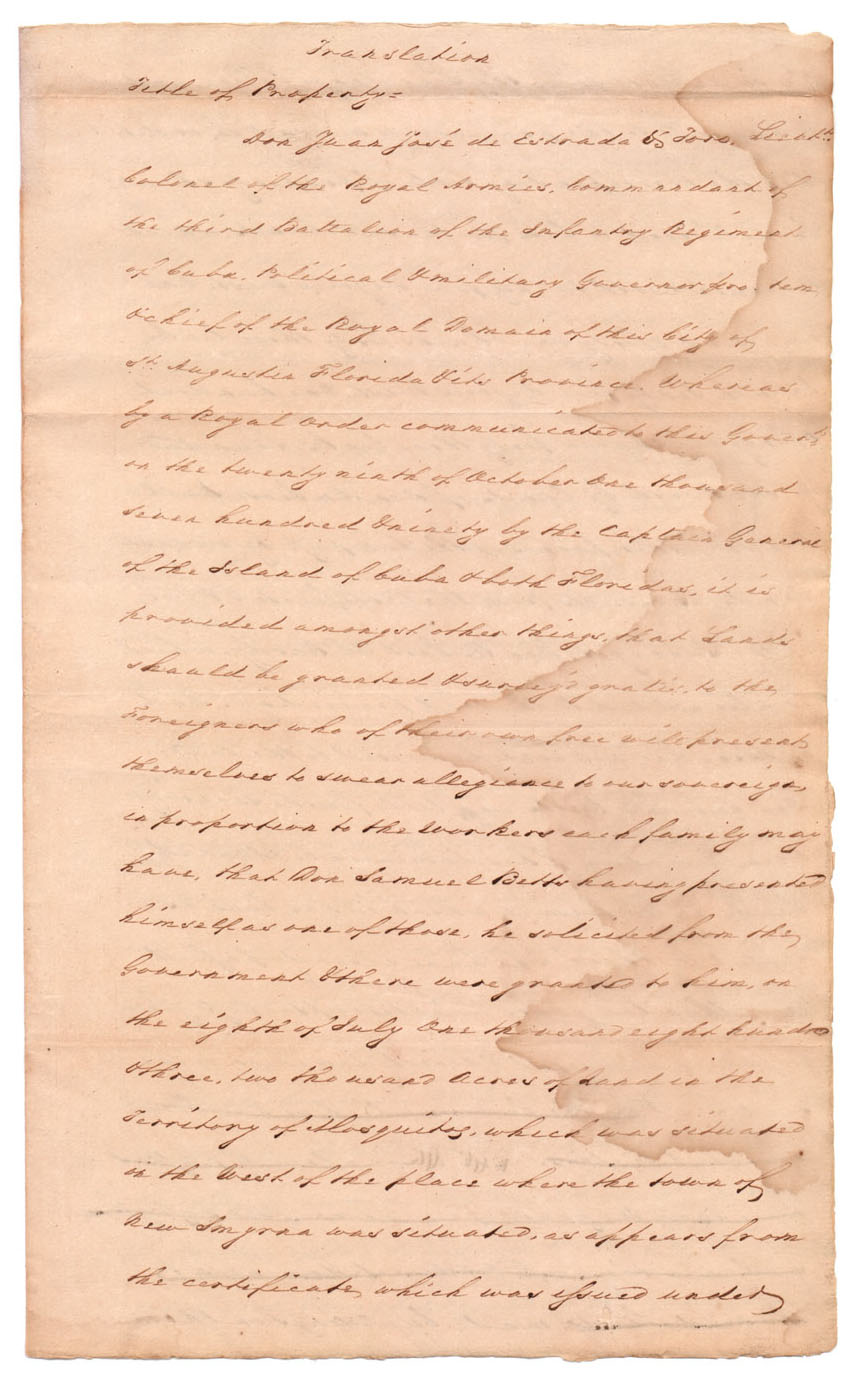 Translation
Title of Property =
Don Juan José de Estrada & Toro, Lieutt
Colonel of the Royal Armies, Commandant of
the third Battalion of the Infantry Regiment
of Cuba, Political & military Governor pro. tem
& chief of the Royal Domain of this City of
St Augustin Florida & its Province. Whereas
by a Royal Order communicated to this Govert
on the twenty ninth of October One thousand
seven hundred & ninety by the Captain General
of the Island of Cuba & both Floridas, it is
provided amongst other things, that Lands
should be granted & survey'd gratis, to the
Foreigners who of their own free will present
themselves to swear allegiance to our sovereign,
in proportion to the Workers each family may
have, that Don Samuel Betts having presented
himself as one of those, he solicited from the
Government & there were granted to him, on
the eighth of July One thousand eight hundred
& three, two thousand Acres of Land in the
Territory of Mosquitos, which was situated
on the West of the place where the town of
New Smyrna was situated, as appears from
the certificate, which was issued under